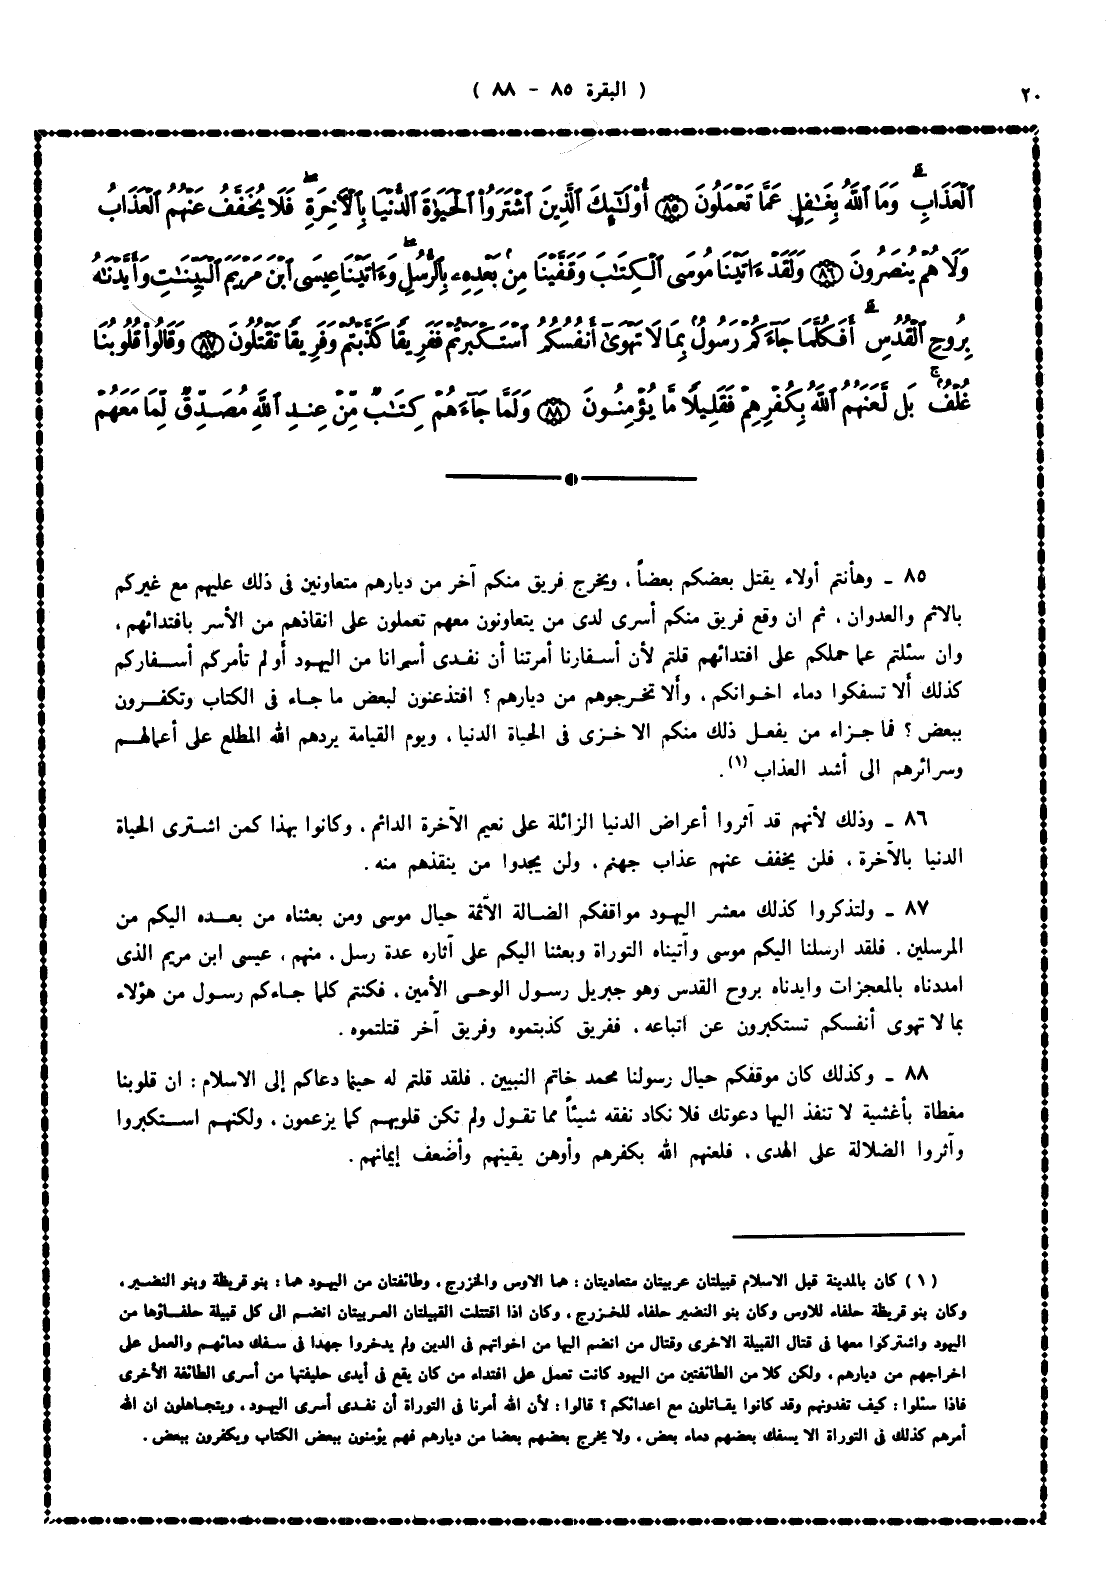 ٢٠
( البقرة ٨٥ – ٨٨ )
ٱلْعَذَابِ وَمَا ٱللَّهُ بِغَٰفِلٍ عَمَّا تَعْمَلُونَ ﴿٨٥﴾ أُوْلَٰٓئِكَ ٱلَّذِينَ ٱشْتَرَوُا۟ ٱلْحَيَوٰةَ ٱلدُّنْيَا بِٱلْأَخِرَةِ فَلَا يُخَفَّفُ عَنْهُمُ ٱلْعَذَابُ
وَلَا هُمْ يُنصَرُونَ ﴿٨٦﴾ وَلَقَدْ ءَاتَيْنَا مُوسَى ٱلْكِتَٰبَ وَقَفَّيْنَا مِنۢ بَعْدِهِۦ بِٱلرُّسُلِ وَءَاتَيْنَا عِيسَى ٱبْنَ مَرْيَمَ ٱلْبَيِّنَٰتِ وَأَيَّدْنَٰهُ
بِرُوحِ ٱلْقُدُسِ أَفَكُلَّمَا جَآءَكُمْ رَسُولٌۢ بِمَا لَا تَهْوَىٰٓ أَنفُسُكُمُ ٱسْتَكْبَرْتُمْ فَفَرِيقًا كَذَّبْتُمْ وَفَرِيقًا تَقْتُلُونَ ﴿٨٧﴾ وَقَالُوا۟ قُلُوبُنَا
غُلْفٌۢ بَل لَّعَنَهُمُ ٱللَّهُ بِكُفْرِهِمْ فَقَلِيلًا مَّا يُؤْمِنُونَ ﴿٨٨﴾ وَلَمَّا جَآءَهُمْ كِتَٰبٌ مِّنْ عِندِ ٱللَّهِ مُصَدِّقٌ لِّمَا مَعَهُمْ
٨٥ ـ وهأنتم أولاء يقتل بعضكم بعضاً ، ويخرج فريق منكم آخر من ديارهم متعاونين فى ذلك عليهم مع غيركم
بالاثم والعدوان ، ثم ان وقع فريق منكم أسرى لدى من يتعاونون معهم تعملون على انقاذهم من الأسر بافتدائهم ،
وان سئلتم عما حملكم على افتدائهم قلتم لأن أسفارنا أمرتنا أن نفدى أسرانا من اليهود أولم تأمركم أسفاركم
كذلك ألا تسفكوا دماء اخوانكم ، وألا تخرجوهم من ديارهم ؟ افتذعنون لبعض ما جاء فى الكتاب وتكفرون
ببعض ؟ فما جزاء من يفعل ذلك منكم الا خزى فى الحياة الدنيا ، ويوم القيامة يردهم الله المطلع على أعمالهم
وسرائرهم الى أشد العذاب (١) .
٨٦ ـ وذلك لأنهم قد آثروا أعراض الدنيا الزائلة على نعيم الآخرة الدائم ، وكانوا بهذا كمن اشترى الحياة
الدنيا بالآخرة ، فلن يخفف عنهم عذاب جهنم ، ولن يجدوا من ينقذهم منه .
٨٧ ـ ولتذكروا كذلك معشر اليهود مواقفكم الضالة الآثمة حيال موسى ومن بعثناه من بعده اليكم من
المرسلين . فلقد ارسلنا اليكم موسى وآتيناه التوراة وبعثنا اليكم على آثاره عدة رسل ، منهم ، عيسى ابن مريم الذى
امددناه بالمعجزات وايدناه بروح القدس وهو جبريل رسول الوحى الأمين ، فكنتم كلما جاءكم رسول من هؤلاء
بما لا تهوى أنفسكم تستكبرون عن اتباعه ، ففريق كذبتموه وفريق آخر قتلتموه .
٨٨ ـ وكذلك كان موقفكم حيال رسولنا محمد خاتم النبيين . فلقد قلتم له حينما دعاكم إلى الاسلام : ان قلوبنا
مغطاة بأغشية لا تنفذ اليها دعوتك فلا نكاد نفقه شيئاً مما تقول ولم تكن قلوبهم كما يزعمون ، ولكنهم استكبروا
وآثروا الضلالة على الهدى ، فلعنهم الله بكفرهم وأوهن يقينهم وأضعف إيمانهم .
(١) كان بالمدينة قبل الاسلام قبيلتان عربيتان متعاديتان : هما الاوس والخزرج ، وطائفتان من اليهود هما : بنو قريظة وبنو النضير ،
وكان بنو قريظة حلفاء للاوس وكان بنو النضير حلفاء للخزرج ، وكان اذا اقتتلت القبيلتان العربيتان انضم الى كل قبيلة حلفاؤها من
اليهود واشتركوا معها فى قتال القبيلة الاخرى وقتال من انضم اليها من اخواتهم فى الدين ولم يدخروا جهدا فى سفك دمائهم والعمل على
اخراجهم من ديارهم ، ولكن كلا من الطائفتين من اليهود كانت تعمل على افتداء من كان يقع فى أيدى حليفتها من أسرى الطائفة الأخرى
فاذا سئلوا : كيف تفدونهم وقد كانوا يقاتلون مع اعدائكم ؟ قالوا : لأن الله أمرنا فى التوراة أن نفدى أسرى اليهود ، ويتجاهلون ان الله
أمرهم كذلك فى التوراة الا يسفك بعضهم دماء بعض ، ولا يخرج بعضهم بعضا من ديارهم فهم يؤمنون ببعض الكتاب ويكفرون ببعض .